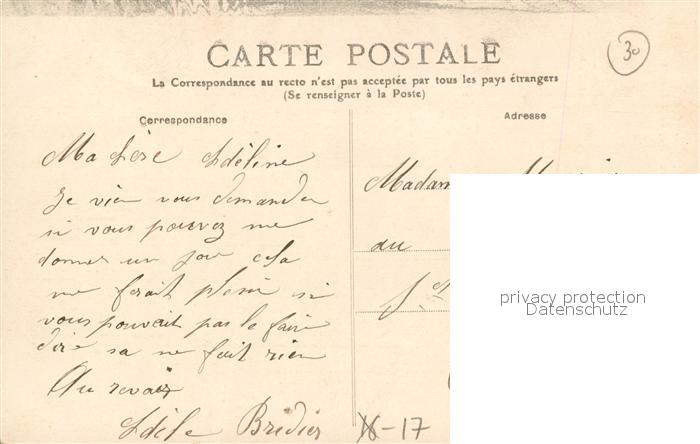 CARTE POSTALE
30
La Correspondance au recto n'est pas acceptée par tous les pays étrangers
(Se renseigner à la Poste)
Correspondance
Adresse
Ma chère Adéline
Je vien vous demander
si vous pouvez me
donner un jou cela
me ferait plesir si
vous pouvait pas le faire
dire sa ne fait rien
Au revoir
Adèle Bridier
Madam
au
privacy protection
Datenschutz
-17